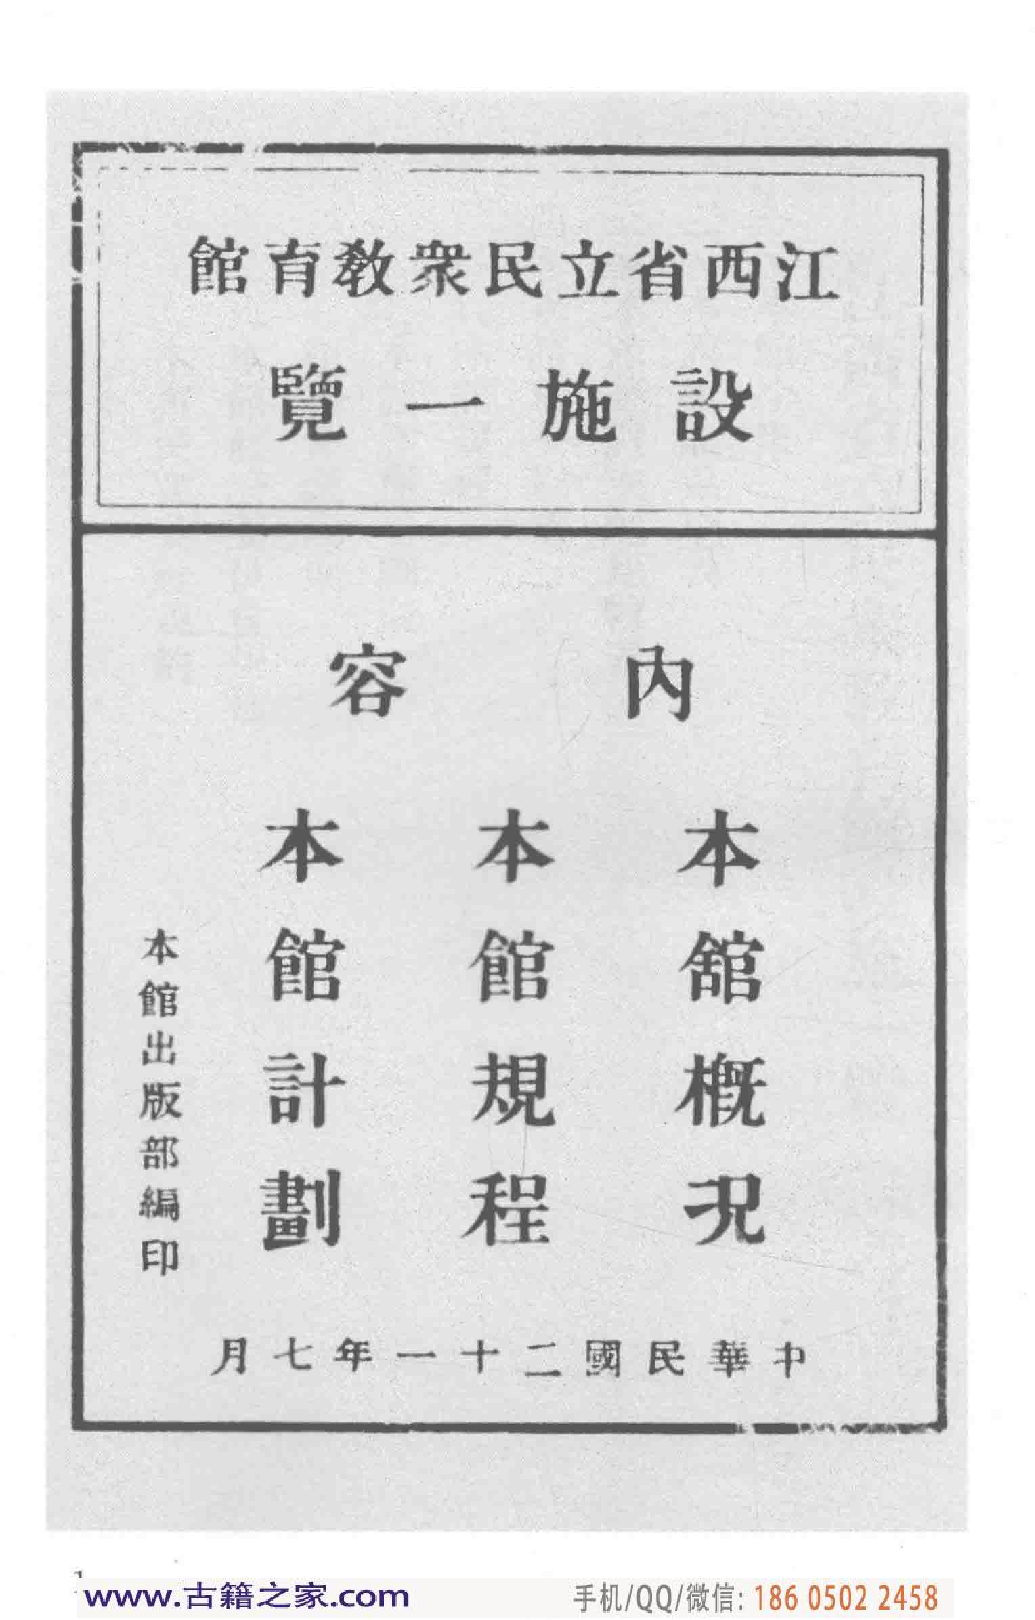 江西省立民衆教育館
設施一覽
內容
本館概況
本館規程
本館計劃
本館出版部編印
中華民國二十一年七月
1
www.古籍之家.com
手机/QQ/微信: 186 0502 2458